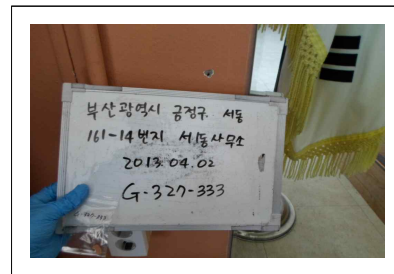 부산광역시 금정구 서동
161-14번지 서1동사무소
2013.04.02
G-327-333